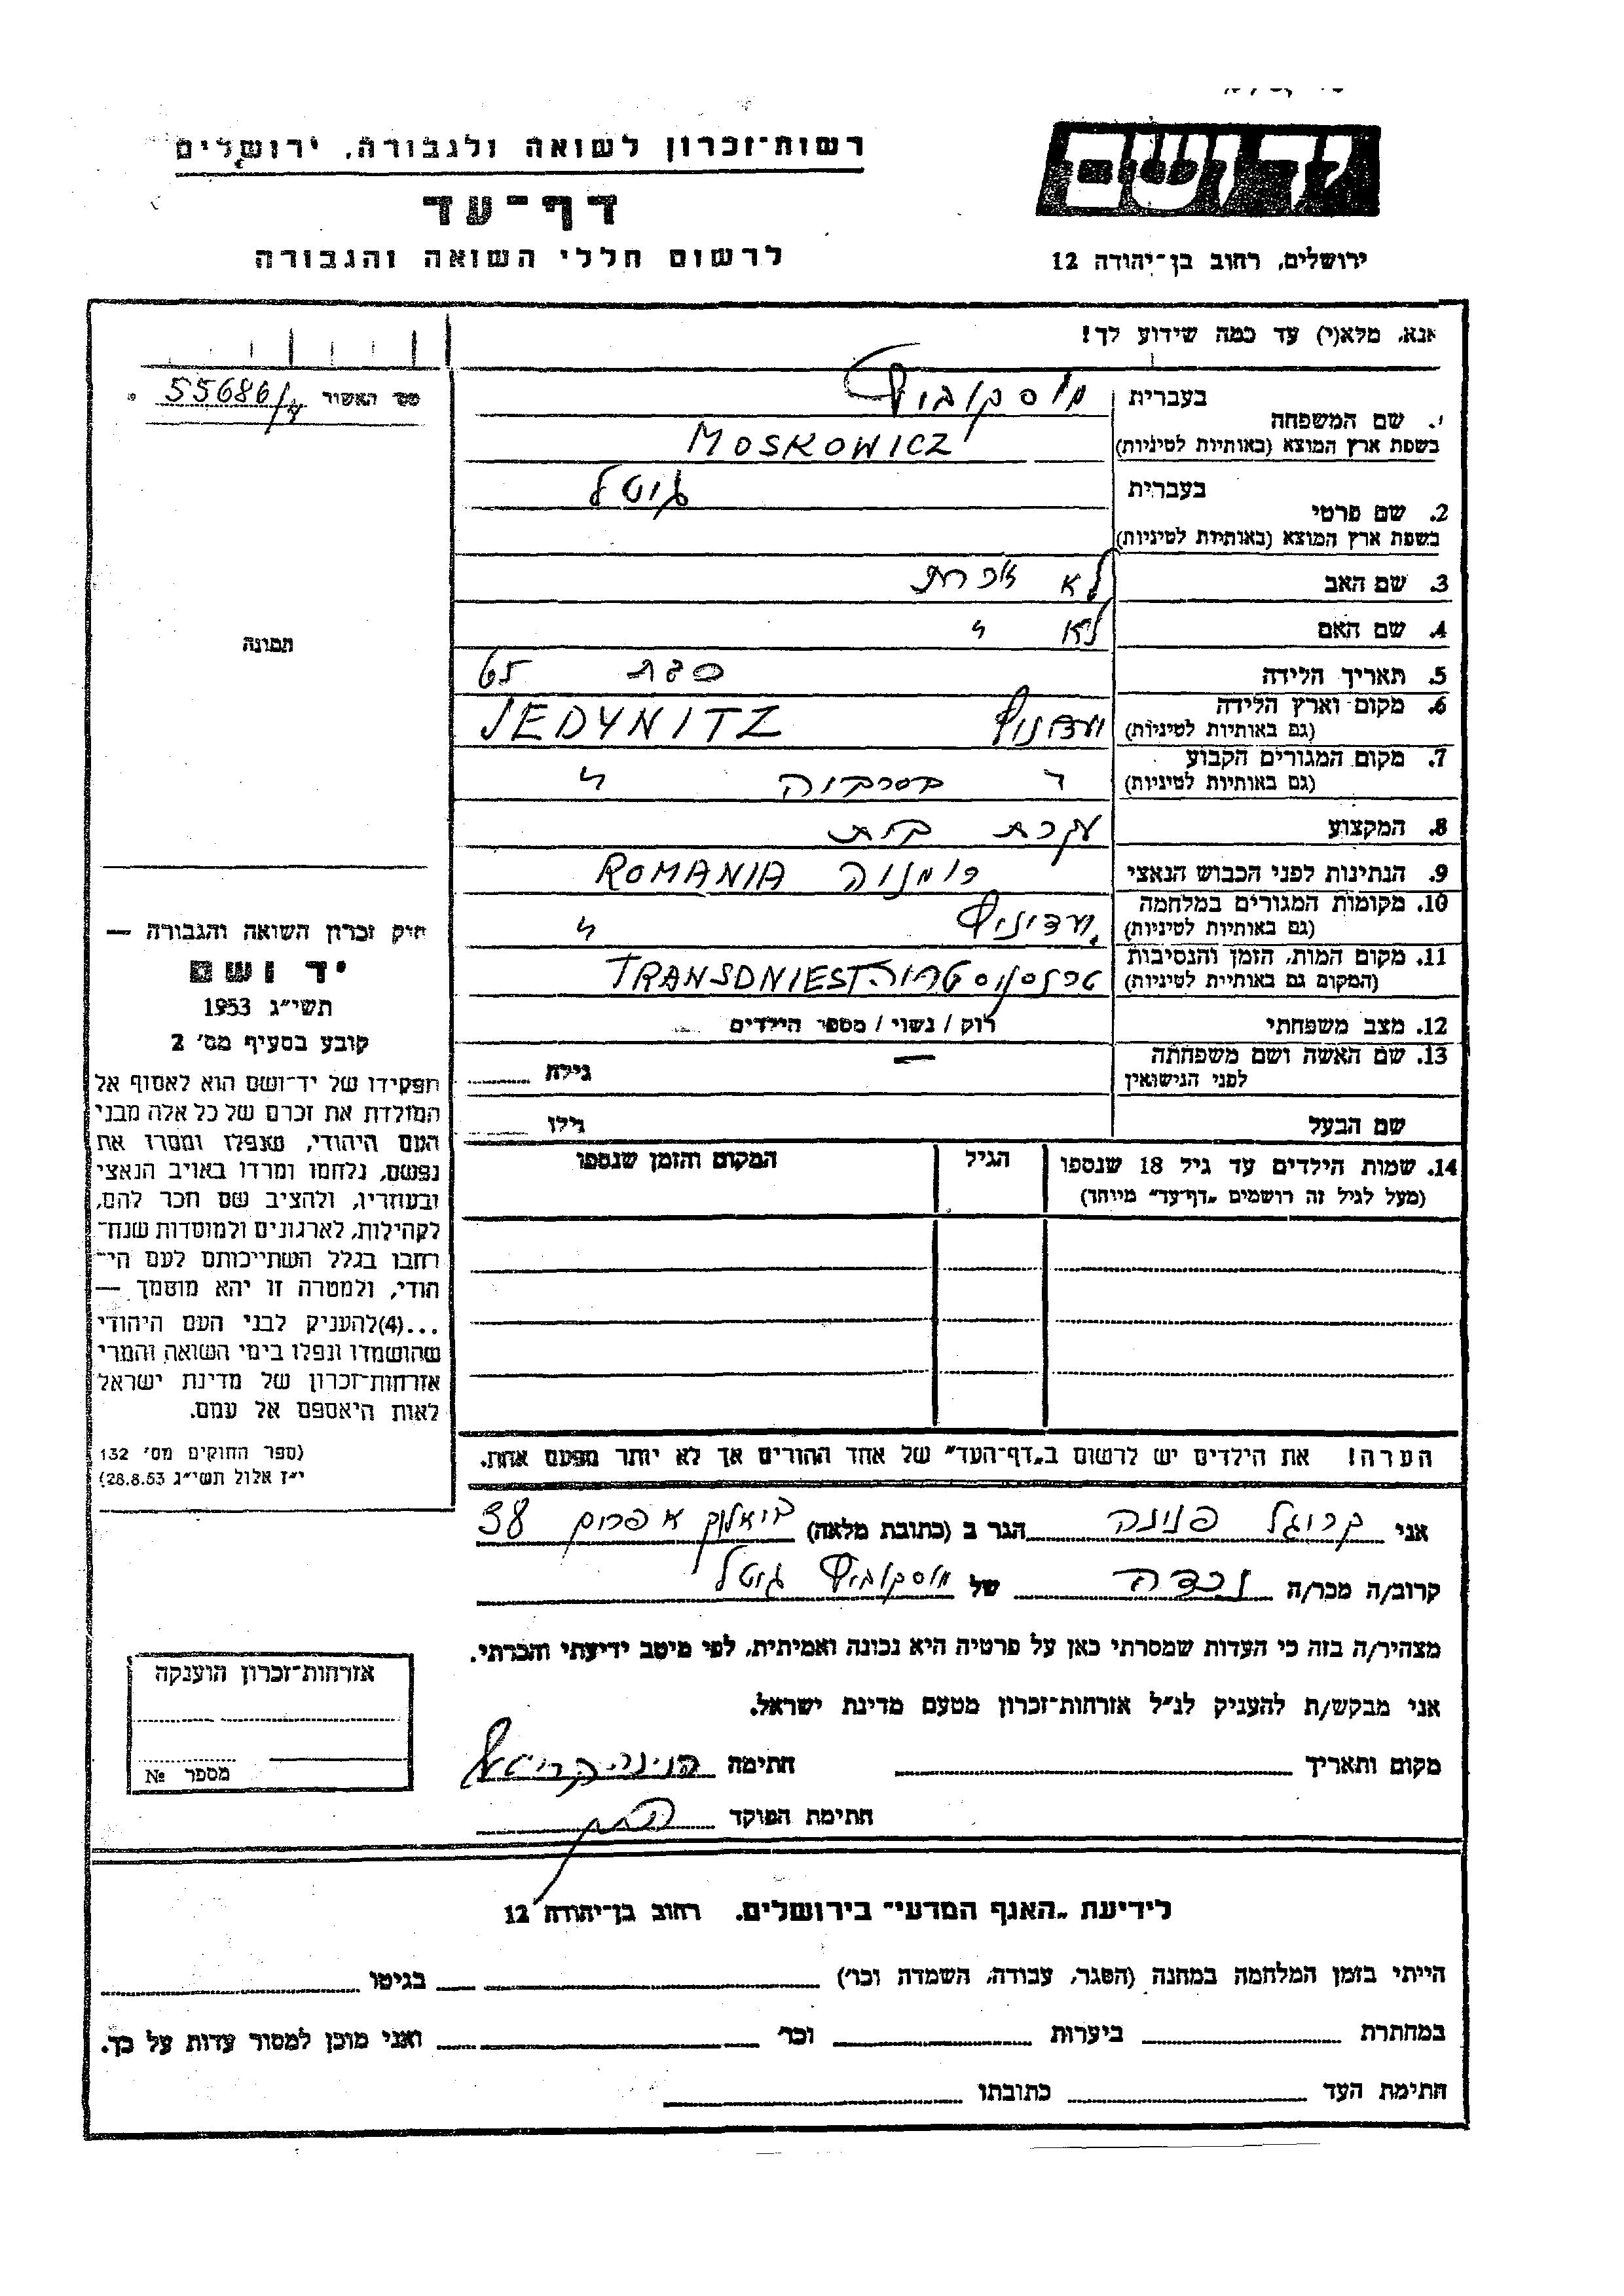 רשות־זכרון לשואה ולגבורה, ירושלים
דף־עד
לרשום חללי השואה והגבורה
יד ושם
ירושלים, רחוב בן־יהודה 12
אנא, מלא(י) עד כמה שידוע לך!
מס' האשור 55686/
1. שם המשפחה
בעברית מוסקוביץ
בשפת ארץ המוצא (באותיות לטיניות) MOSKOWICZ
2. שם פרטי
בעברית גיטל
בשפת ארץ המוצא (באותיות לטיניות)
3. שם האב לא זוכרת
4. שם האם לא "
5. תאריך הלידה בגת 65
6. מקום וארץ הלידה
(גם באותיות לטיניות) JEDYNITZ
7. מקום המגורים הקבוע
(גם באותיות לטיניות) " בסרביה "
8. המקצוע עקרת בית
9. הנתינות לפני הכבוש הנאצי רומניה ROMANIA
10. מקומות המגורים במלחמה
(גם באותיות לטיניות) ידיניץ "
11. מקום המות, הזמן והנסיבות
(המקום גם באותיות לטיניות) טרנסניסטריה TRANSDNIEST
12. מצב משפחתי רוק / נשוי / מספר הילדים
13. שם האשה ושם משפחתה
לפני הנישואין — גילה
שם הבעל גילו
14. שמות הילדים עד גיל 18 שנספו
(מעל לגיל זה רושמים „דף־עד" מיוחד)
הגיל
המקום והזמן שנספו
הערה! את הילדים יש לרשום ב„דף־העד" של אחד ההורים אך לא יותר מפעם אחת.
תמונה
חוק זכרון השואה והגבורה —
יד ושם
תשי"ג 1953
קובע בסעיף מס' 2
תפקידו של יד־ושם הוא לאסוף אל
המולדת את זכרם של כל אלה מבני
העם היהודי, שנפלו ומסרו את
נפשם, נלחמו ומרדו באויב הנאצי
ובעוזריו, ולהציב שם וזכר להם,
לקהילות, לארגונים ולמוסדות שנח־
רבו בגלל השתייכותם לעם הי־
הודי, ולמטרה זו יהא מוסמך —
...(4) להעניק לבני העם היהודי
שהושמדו ונפלו בימי השואה והמרי
אזרחות־זכרון של מדינת ישראל
לאות היאספם אל עמם.
(ספר החוקים מס' 132
י"ז אלול תשי"ג 28.8.53)
אני קרוגל פנינה הגר ב (כתובת מלאה) ביאליק אפרים 38
קרוב/ה מכר/ה נכדה של מוסקוביץ גיטל
מצהיר/ה בזה כי העדות שמסרתי כאן על פרטיה היא נכונה ואמיתית, לפי מיטב ידיעתי והכרתי.
אני מבקש/ת להעניק לנ"ל אזרחות־זכרון מטעם מדינת ישראל.
מקום ותאריך חתימה
חתימת הפוקד
אזרחות־זכרון הוענקה
מספר №
לידיעת „האגף המדעי" בירושלים. רחוב בן־יהודה 12
הייתי בזמן המלחמה במחנה (הסגר, עבודה, השמדה וכו') בגיטו
במחתרת ביערות וכו' ואני מוכן למסור עדות על כך.
חתימת העד כתובתו